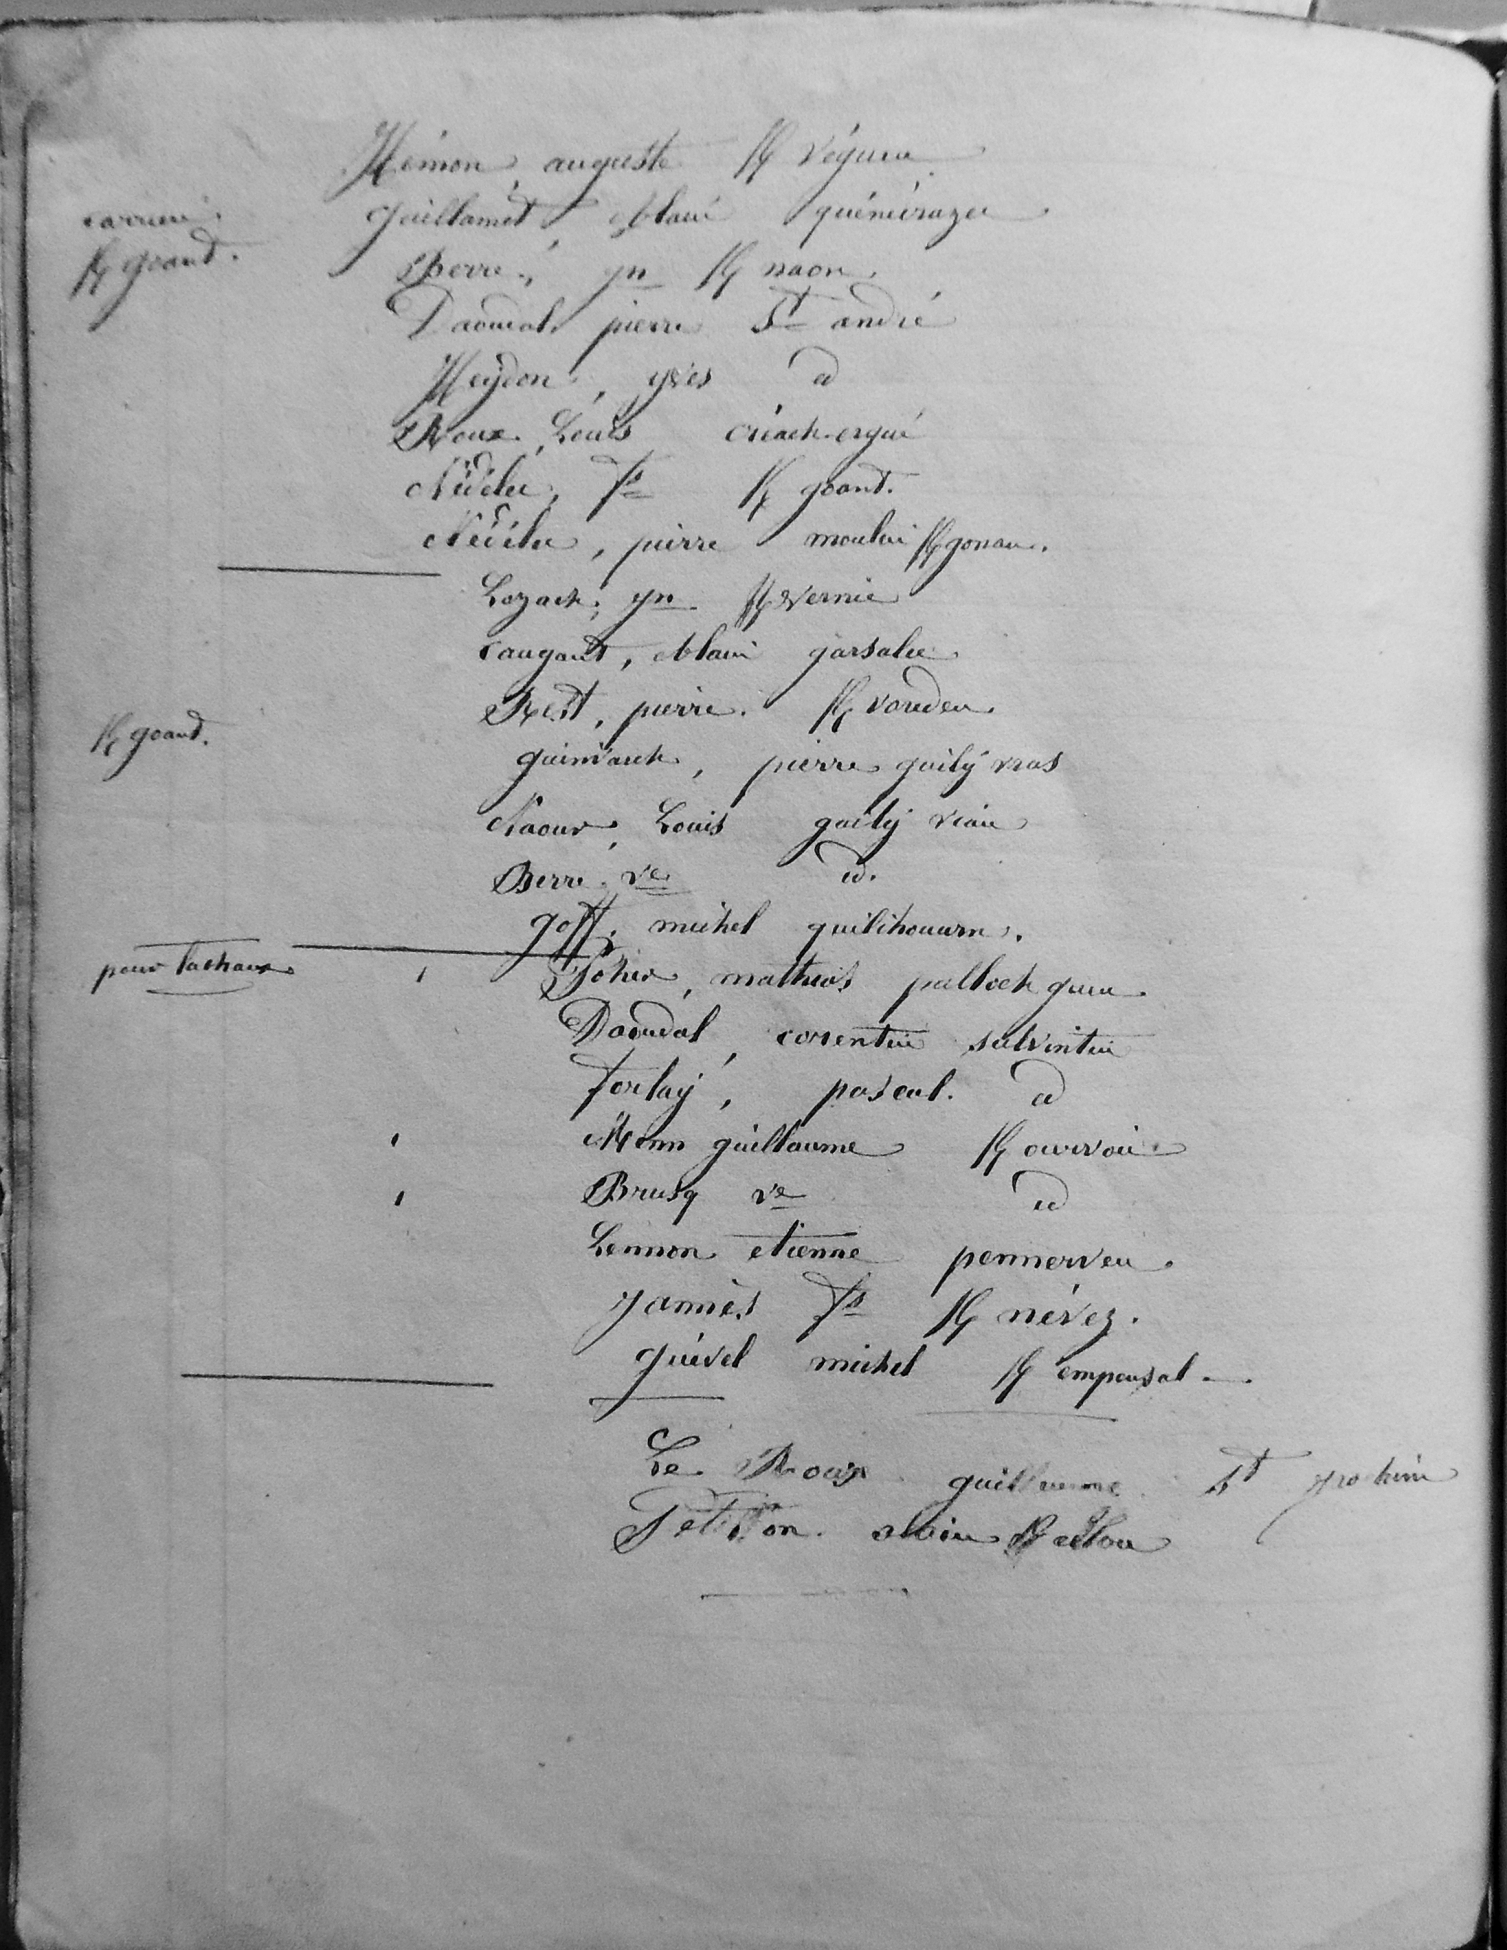 Hémon, auguste K/ véguen
carrière Guillamet Alain quénéruzec
K/ goant. Berre, yn K/ naon
Daoudal, pierre St andré
Heydon, yves id
Roux, Louis créach-ergué
Nédélec, fs K/ goant.
Nédélec, pierre moulin K/gonan.
Lozach, yn K/vernic
caugant, Alain garsalec
Rest, pierre. K/ vouden
K/ goant.
guinvarch, pierre guily vras
Naour, Louis guily vian
Berre ve id.
goff, michel quilihouarn.
pour Lachaux Sohier, mathias pulloch guen
Daoudal, corentin sulvintin
forlay, pascal. id
Menn guillaume K/ ourvois
Brusq ve id
Lennon etienne pennerven
Jannès fs K/ névez.
guével michel K/ empensal
Le Roux guillaume St joachim
Pétillon. alain K/ ellou